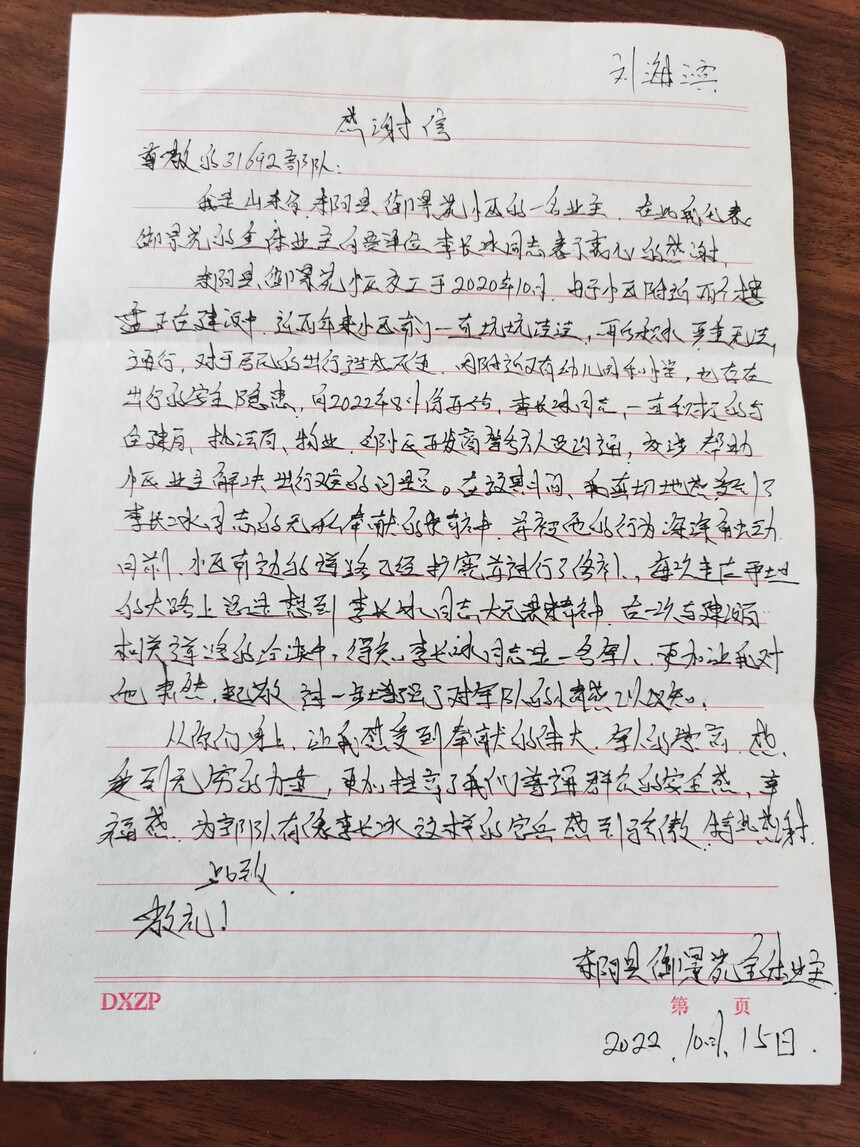 刘海滨
感谢信
尊敬的31692部队:
我是山东省东阿县御景苑小区的一名业主.在此我代表
御景苑的全体业主向贵单位李长冰同志表示衷心的感谢.
东阿县御景苑小区交工于2020年10月.由于小区附近两个楼
盘正在建设中.近两年来小区南门一直坑坑洼洼,雨后积水严重无法
通行,对于居民的出行造成不便.因附近又有幼儿园和小学,也存在
出行的安全隐患.自2022年8月份开始,李长冰同志,一直积极的与
住建局、执法局、物业、小区开发商等多人员沟通,交涉.帮助
小区业主解决出行难的问题。在这期间、我真切地感受到了
李长冰同志的无私奉献的精神.并被他的行为深深触动.
目前.小区南边的道路已经扩宽并进行了修补.每次走在平坦
的大路上总是想到李长冰同志大无畏精神.在一次与建设局
相关领导的洽谈中,得知李长冰同志是一名军人.更加让我对
他肃然起敬进一步增强了对军队的情感以及认知.
从你们身上,让我感受到奉献的伟大.军人的崇高.感
受到无穷的力量,更加提高了我们普通群众的安全感,幸
福感.为部队有像李长冰这样的官兵感到骄傲.特此感谢.
此致
敬礼!
东阿县御景苑全体业主
DXZP
第 页
2022.10月.15日.